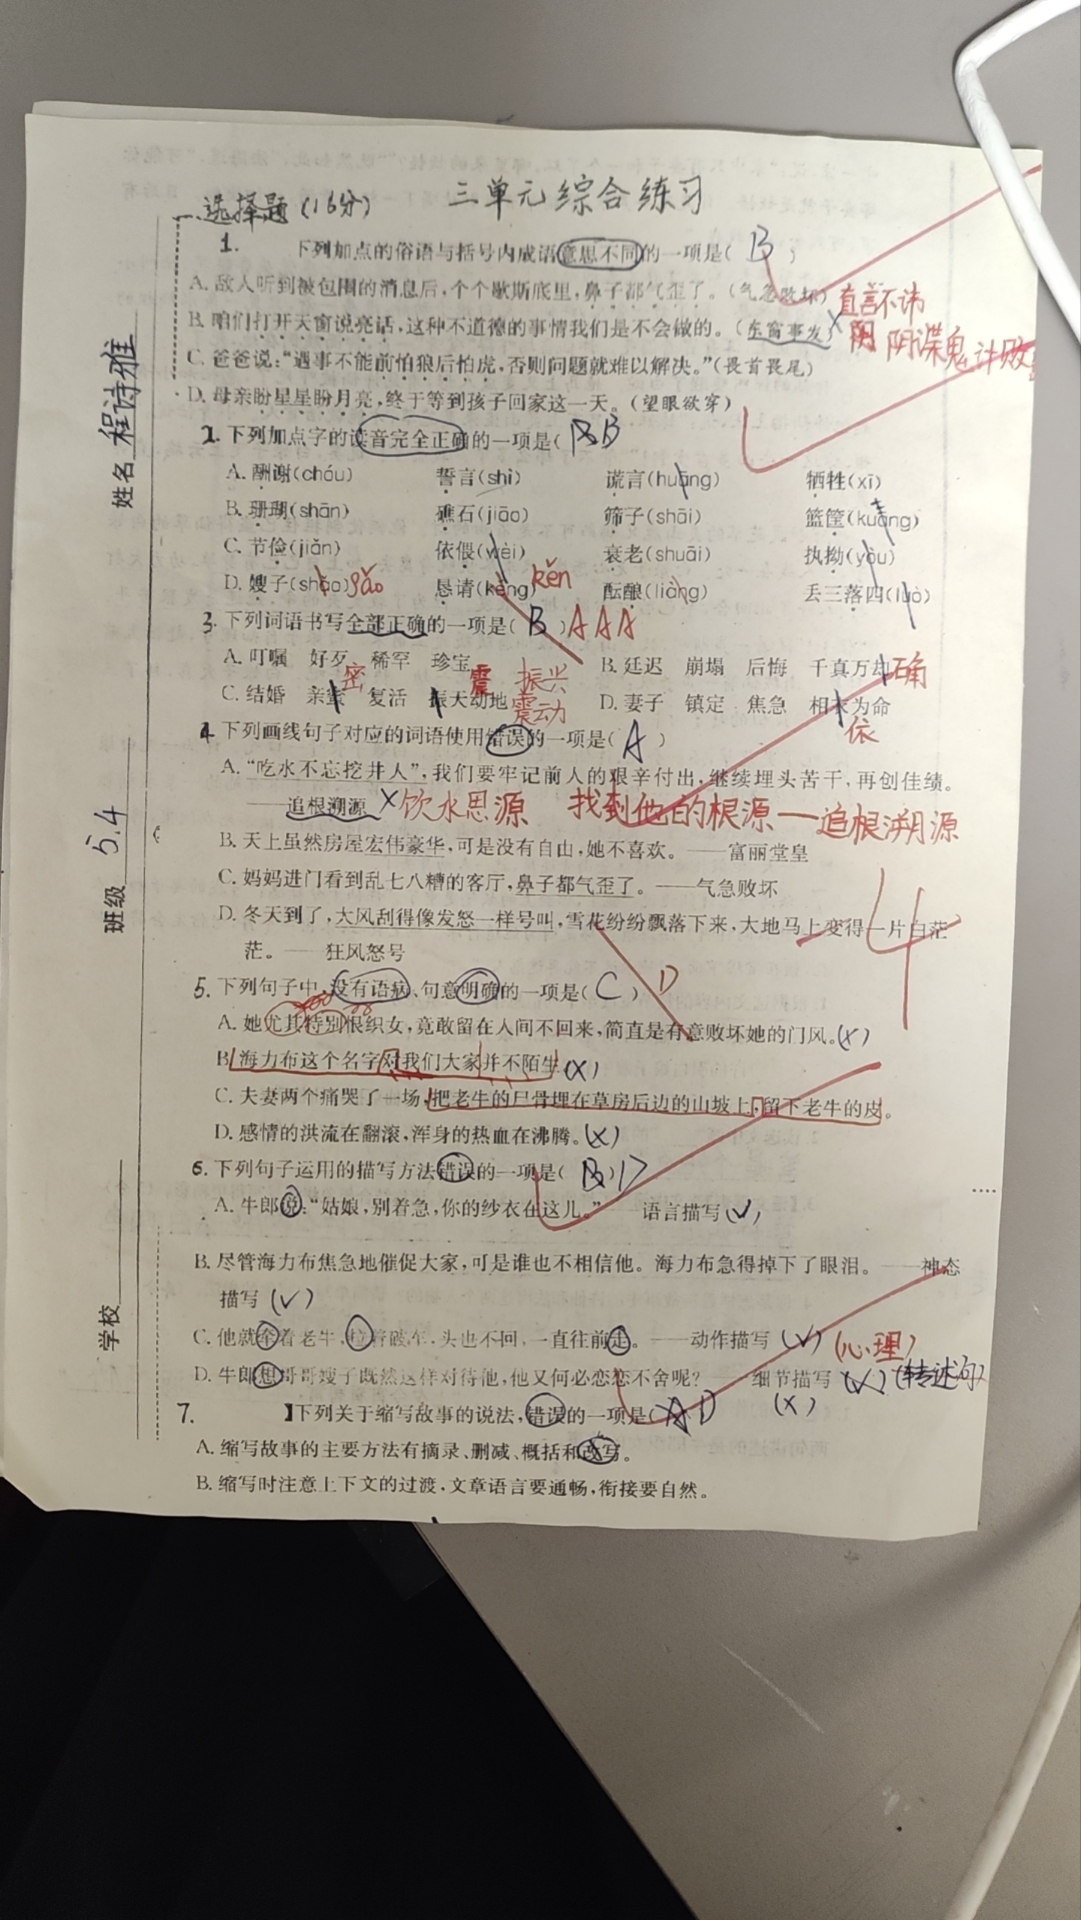 三单元综合练习
一、选择题(16分)
1. 下列加点的俗语与括号内成语意思不同的一项是( B )
A. 敌人听到被包围的消息后,个个歇斯底里,鼻子都气歪了。(气急败坏) 直言不讳
B. 咱们打开天窗说亮话,这种不道德的事情我们是不会做的。(东窗事发)× 阴谋鬼计败
C. 爸爸说:“遇事不能前怕狼后怕虎,否则问题就难以解决。”(畏首畏尾)
D. 母亲盼星星盼月亮,终于等到孩子回家这一天。(望眼欲穿)
2. 下列加点字的读音完全正确的一项是( B
A. 酬谢(chóu) 誓言(shì) 谎言(huāng) 牺牲(xī)
B. 珊瑚(shān) 礁石(jiāo) 筛子(shāi) 篮筐(kuāng)
C. 节俭(jiǎn) 依偎(wèi) 衰老(shuāi) 执拗(yòu)
D. 嫂子(shǎo)sǎo 恳请(kěng) kěn 酝酿(liàng) 丢三落四(luò)
3. 下列词语书写全部正确的一项是( B )A A A
A. 叮嘱 好歹 稀罕 珍宝 B. 廷迟 崩塌 后悔 千真万却 确
C. 结婚 亲蜜 密 复活 振天动地 震 振兴 震动 D. 妻子 镇定 焦急 相衣为命 依
4. 下列画线句子对应的词语使用错误的一项是( A )
A. “吃水不忘挖井人”,我们要牢记前人的艰辛付出,继续埋头苦干,再创佳绩。
——追根溯源 × 饮水思源 找到他的根源—追根溯源
B. 天上虽然房屋宏伟豪华,可是没有自由,她不喜欢。——富丽堂皇
C. 妈妈进门看到乱七八糟的客厅,鼻子都气歪了。——气急败坏
D. 冬天到了,大风刮得像发怒一样号叫,雪花纷纷飘落下来,大地马上变得一片白茫
茫。——狂风怒号
4
5. 下列句子中,没有语病、句意明确的一项是( C ) D
A. 她尤其特别恨织女,竟敢留在人间不回来,简直是有意败坏她的门风。(×)
B. 海力布这个名字对我们大家并不陌生。(×)
C. 夫妻两个痛哭了一场,把老牛的尸骨埋在草房后边的山坡上,留下老牛的皮。
D. 感情的洪流在翻滚,浑身的热血在沸腾。(×)
6. 下列句子运用的描写方法错误的一项是( B ) D
A. 牛郎说:“姑娘,别着急,你的纱衣在这儿。”——语言描写(√)
B. 尽管海力布焦急地催促大家,可是谁也不相信他。海力布急得掉下了眼泪。——神态
描写(√)
C. 他就牵着老牛,拉着破车,头也不回,一直往前走。——动作描写(√)(心理)
D. 牛郎想哥哥嫂子既然这样对待他,他又何必恋恋不舍呢?——细节描写 (转述句)
(×)
7. 】下列关于缩写故事的说法,错误的一项是( A D
A. 缩写故事的主要方法有摘录、删减、概括和改写。
B. 缩写时注意上下文的过渡,文章语言要通畅,衔接要自然。
姓名 程诗雅
班级 5.4
学校